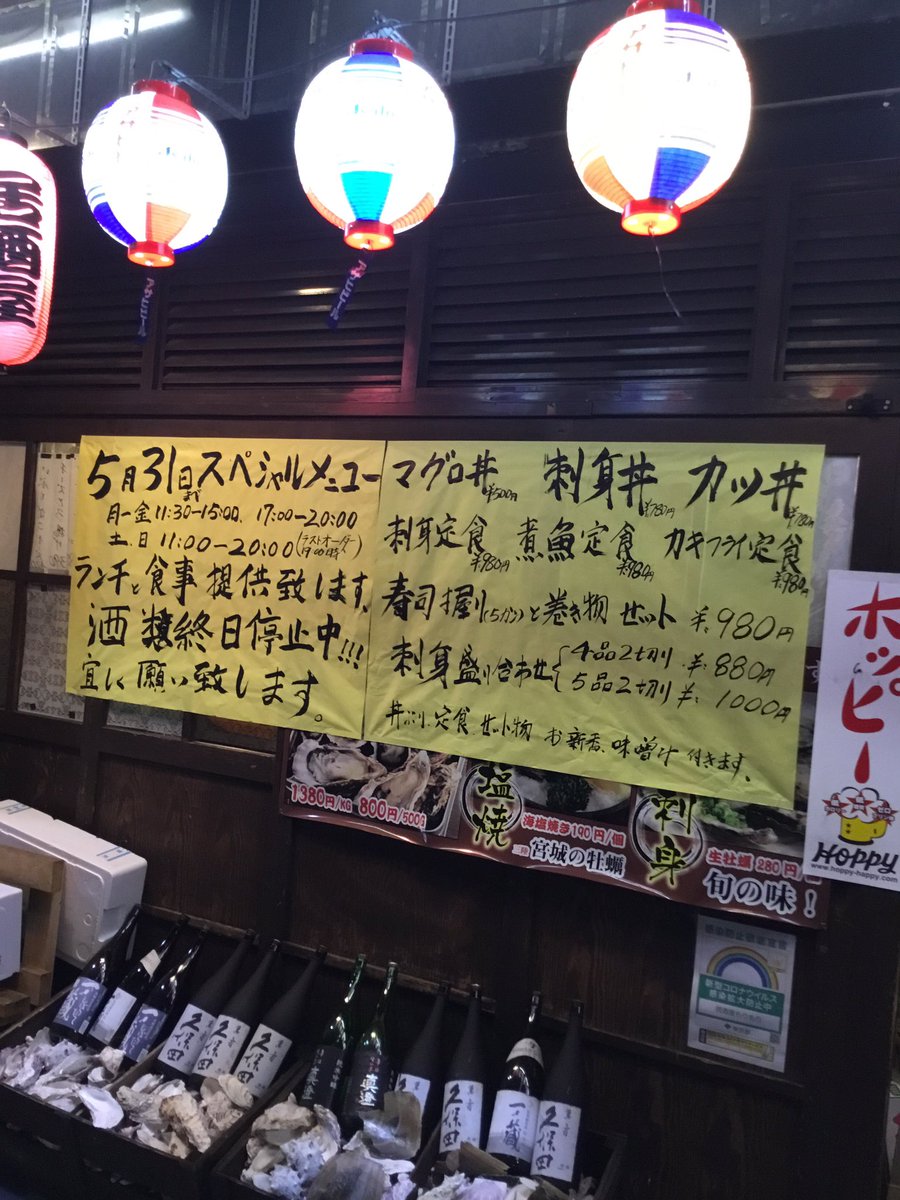 居酒屋
5月31日までスペシャルメニュー
月ー金11:30-15:00、17:00-20:00
土.日 11:00-20:00(ラストオーダー
ランチと食事提供致します、
終日停止中!!!
宜しく願い致します。
マグロ丼 ¥500円 刺身丼 ¥780円 カツ丼 ¥780円
刺身定食 ¥980円 煮魚定食 ¥980円 カキフライ定食 ¥980円
寿司握り(5カン)と巻き物 セット ¥.980円
刺身盛り合わせ 4品2切り ¥.880円
5品2切り ¥.1000円
丼ぶり、定食、セット物 お新香、味噌汁 付きます、
1380円/KG 800円/500G
塩焼
海塩焼き190円/個
三陸 宮城の牡蠣
刺身
生牡蠣 280円
旬の味！
ホッピー
HOPPY
www.hoppy-happy.com
感染防止徹底宣言
新型コロナウイルス
感染拡大防止中
久保田
久保田
久保田
真澄
久保田
一ノ蔵
久保田